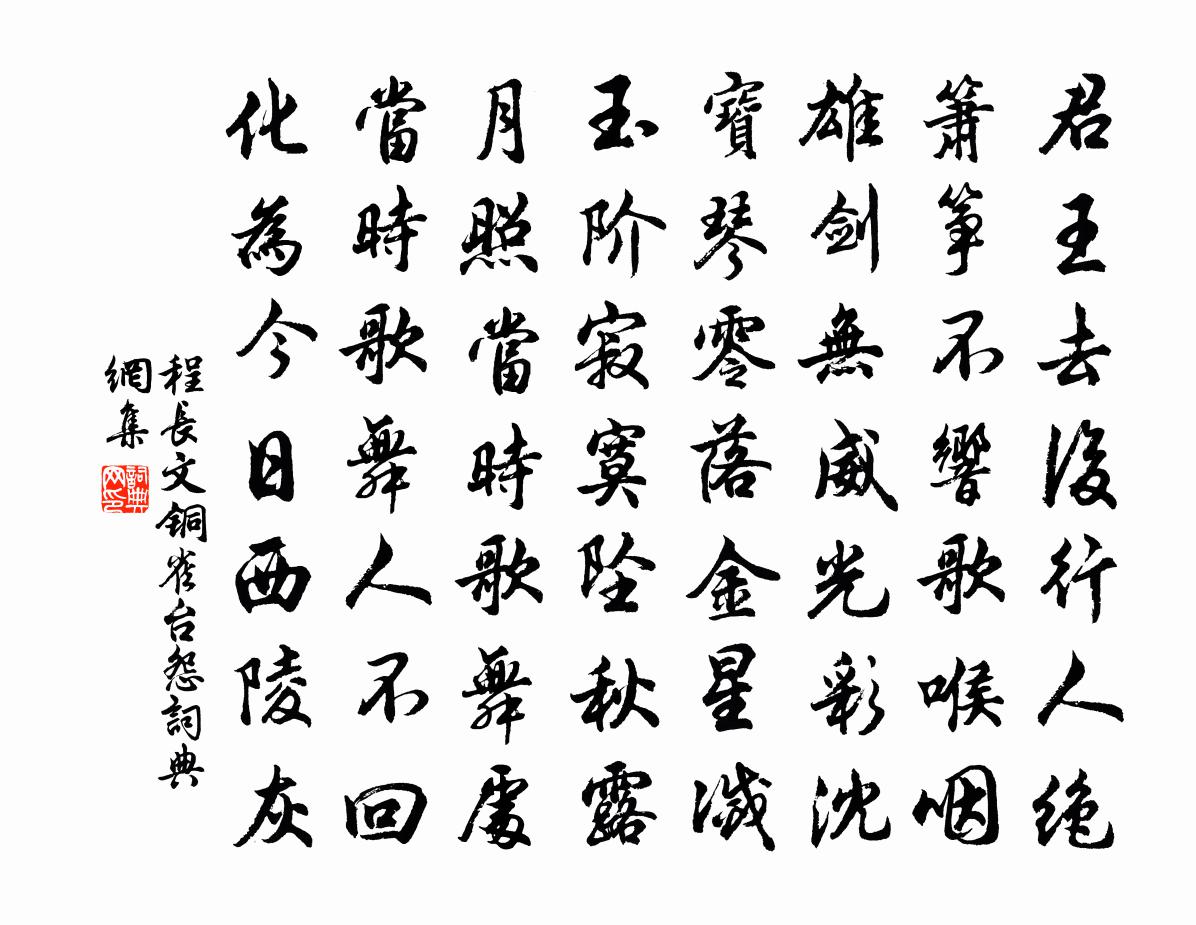 君王去後行人绝
簫箏不響歌喉咽
雄劍無威光彩沈
寶琴零落金星滅
玉阶寂寞坠秋露
月照當時歌舞處
當時歌舞人不回
化為今日西陵灰
程長文銅雀台怨詞典
網集
詞典網印